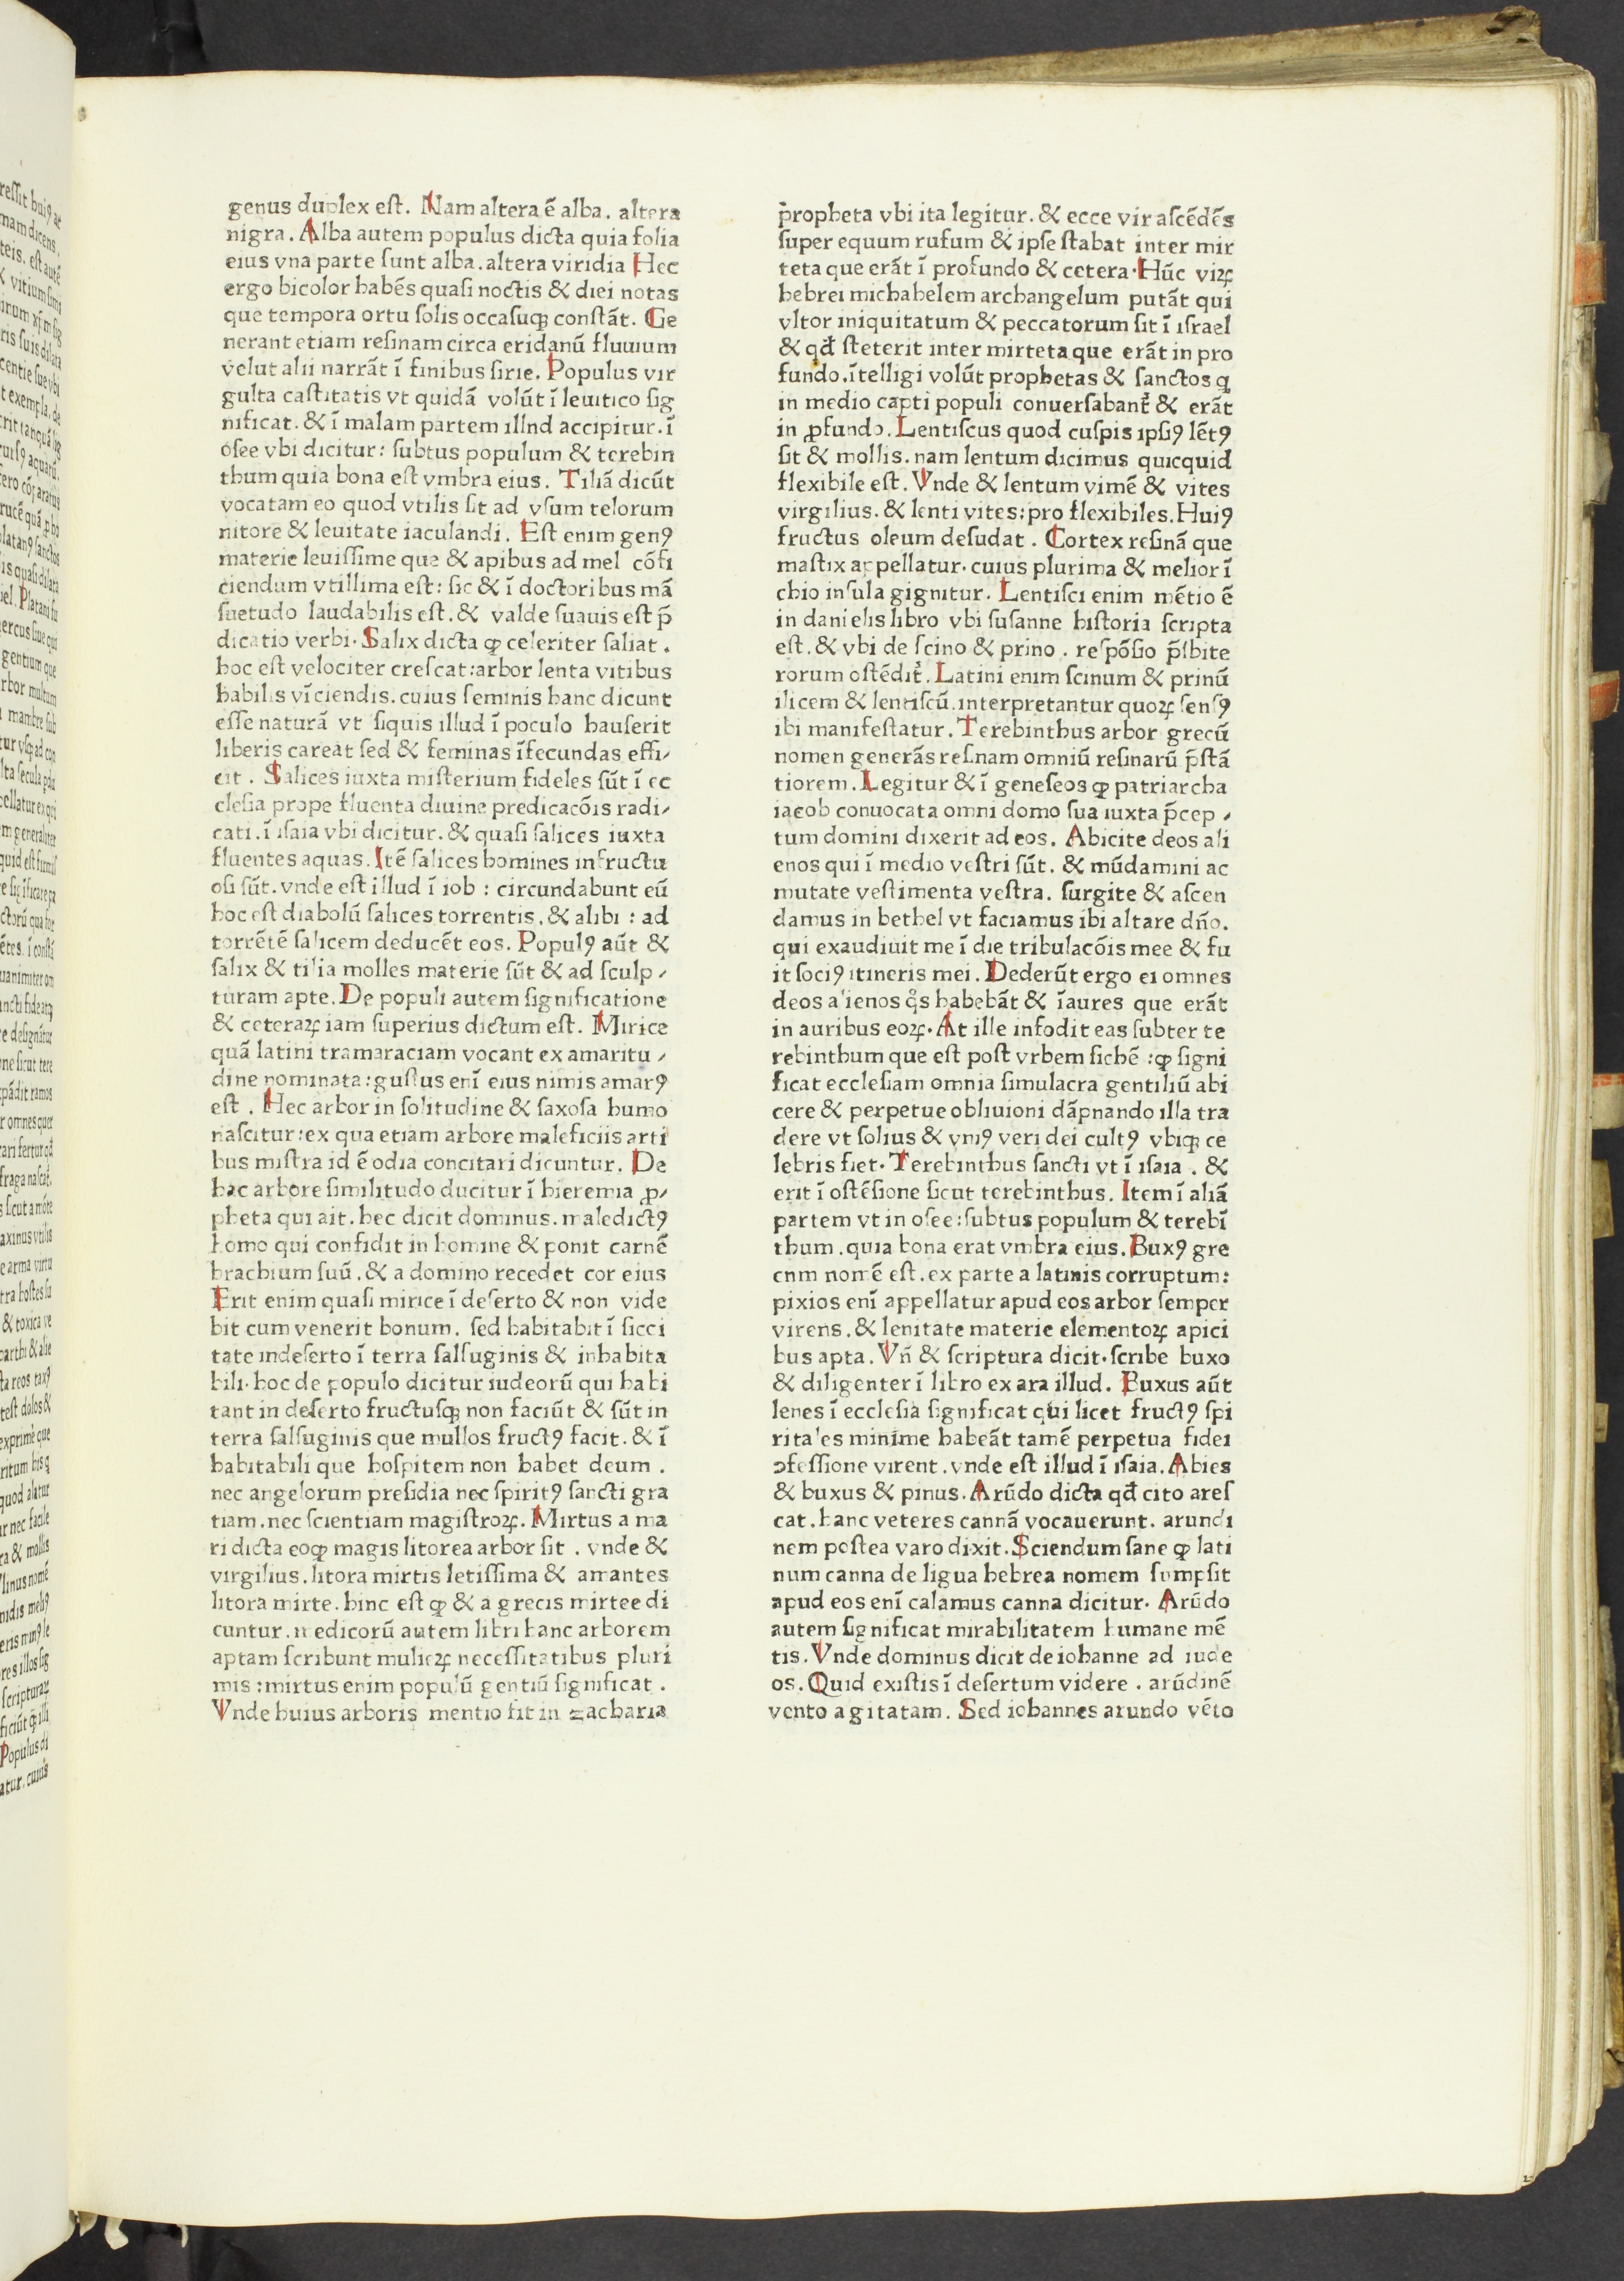 genus duplex eſt. Nam altera ē alba. altera
nigra. Alba autem populus dicta quia folia
eius vna parte ſunt alba. altera viridia Hec
ergo bicolor habēs quaſi noctis & diei notas
que tempora ortu ſolis occaſuqꝫ conſtāt. Ge
nerant etiam reſinam circa eridanū fluuium
velut alii narrāt ī finibus ſirie. Populus vir
gulta caſtitatis vt quidā volūt ī leuitico ſig
nificat. & ī malam partem illnd accipitur. ī
oſee vbi dicitur: ſubtus populum & terebin
thum quia bona eſt vmbra eius. Tiliā dicūt
vocatam eo quod vtilis ſit ad vſum telorum
nitore & leuitate iaculandi. Eſt enim genꝯ
materie leuiſſime que & apibus ad mel cōfi
ciendum vtillima eſt: ſic & ī doctoribus mā
ſuetudo laudabilis eſt. & valde ſuauis eſt p̄
dicatio verbi. Salix dicta ꝙ celeriter ſaliat.
hoc eſt velociter creſcat: arbor lenta vitibus
habilis vīciendis. cuius ſeminis hanc dicunt
eſſe naturā vt ſiquis illud ī poculo hauſerit
liberis careat ſed & feminas īfecundas effi⸗
cit. Salices iuxta miſterium fideles ſūt ī ec
cleſia prope fluenta diuine predicacōis radi⸗
cati. ī iſaia vbi dicitur. & quaſi ſalices iuxta
fluentes aquas. Itē ſalices homines infructu
oſi ſūt. vnde eſt illud ī iob: circundabunt eū
hoc eſt diabolū ſalices torrentis. & alibi: ad
torrētē ſalicem deducēt eos. Populꝯ aūt &
ſalix & tilia molles materie ſūt & ad ſculp⸗
turam apte. De populi autem ſignificatione
& ceteraꝝ iam ſuperius dictum eſt. Mirice
quā latini tramaraciam vocant ex amaritu⸗
dine nominata: guſtus enī eius nimis amarꝯ
eſt. Hec arbor in ſolitudine & ſaxoſa humo
naſcitur: ex qua etiam arbore maleficiis arti
bus miſtra id ē odia concitari dicuntur. De
hac arbore ſimilitudo ducitur ī hieremia ꝓ⸗
pheta qui ait. hec dicit dominus. maledictꝯ
homo qui confidit in homine & ponit carnē
brachium ſuū. & a domino recedet cor eius
Erit enim quaſi mirice ī deſerto & non vide
bit cum venerit bonum. ſed habitabit ī ſicci
tate indeſerto ī terra ſalſuginis & inhabita
bili. hoc de populo dicitur iudeorū qui habi
tant in deſerto fructuſqꝫ non faciūt & ſūt in
terra ſalſuginis que mullos fructꝯ facit. & ī
habitabili que hoſpitem non habet deum.
nec angelorum preſidia nec ſpiritꝯ ſancti gra
tiam. nec ſcientiam magiſtroꝝ. Mirtus a ma
ri dicta eoꝙ magis litorea arbor ſit. vnde &
virgilius. litora mirtis letiſſima & amantes
litora mirte. hinc eſt ꝙ & a grecis mirtee di
cuntur. medicorū autem libri hanc arborem
aptam ſcribunt mulieꝝ neceſſitatibus pluri
mis: mirtus enim populū gentiū ſignificat.
Vnde huius arboris mentio fit in zacharia
p̄ropheta vbi ita legitur. & ecce vir aſcēdēs
ſuper equum rufum & ipſe ſtabat inter mir
teta que erāt ī profundo & cetera. Hūc viꝝ
hebrei michahelem archangelum putāt qui
vltor iniquitatum & peccatorum ſit ī iſrael
& qd̄ ſteterit inter mirteta que erāt in pro
fundo. ītelligi volūt prophetas & ſanctos q
in medio capti populi conuerſabant᷑ & erāt
in ꝓfundo. Lentiſcus quod cuſpis ipſiꝯ lētꝯ
ſit & mollis. nam lentum dicimus quicquid
flexibile eſt. Vnde & lentum vimē & vites
virgilius. & lenti vites: pro flexibiles. Huiꝯ
fructus oleum deſudat. Cortex reſinā que
maſtix appellatur. cuius plurima & melior ī
chio inſula gignitur. Lentiſci enim mētio ē
in danielis libro vbi ſuſanne hiſtoria ſcripta
eſt. & vbi de ſcino & prino. reſpōſio p̄ſbite
rorum oſtēdit᷑. Latini enim ſcinum & prinū
ilicem & lentiſcū. interpretantur quoꝝ ſenſꝯ
ibi manifeſtatur. Terebinthus arbor grecū
nomen generās reſinam omniū reſinarū p̄ſtā
tiorem. Legitur & ī geneſeos ꝙ patriarcha
iacob conuocata omni domo ſua iuxta p̄cep⸗
tum domini dixerit ad eos. Abicite deos ali
enos qui ī medio veſtri ſūt. & mūdamini ac
mutate veſtimenta veſtra. ſurgite & aſcen
damus in bethel vt faciamus ibi altare dn̄o.
qui exaudiuit me ī die tribulacōis mee & fu
it ſociꝯ itineris mei. Dederūt ergo ei omnes
deos alienos qͦs habebāt & īaures que erāt
in auribus eoꝝ. At ille infodit eas ſubter te
rebinthum que eſt poſt vrbem ſichē: ꝙ ſigni
ficat eccleſiam omnia ſimulacra gentiliū abi
cere & perpetue obliuioni dāpnando illa tra
dere vt ſolius & vniꝯ veri dei cultꝯ vbiqꝫ ce
lebris fiet. Terebinthus ſancti vt ī iſaia. &
erit ī oſtēſione ſicut terebinthus. Item ī aliā
partem vt in oſee: ſubtus populum & terebī
thum. quia bona erat vmbra eius. Buxꝯ gre
cnm nomē eſt. ex parte a latinis corruptum:
pixios enī appellatur apud eos arbor ſemper
virens. & lenitate materie elementoꝝ apici
bus apta. Vn̄ & ſcriptura dicit. ſcribe buxo
& diligenter ī libro ex ara illud. Buxus aūt
lenes ī eccleſia ſignificat qui licet fructꝯ ſpi
ritales minime habeāt tamē perpetua fidei
ↄfeſſione virent. vnde eſt illud ī iſaia. Abies
& buxus & pinus. Arūdo dicta qd̄ cito areſ
cat. hanc veteres cannā vocauerunt. arundi
nem poſtea varo dixit. Sciendum ſane ꝙ lati
num canna de ligua hebrea nomem ſumpſit
apud eos enī calamus canna dicitur. Arūdo
autem ſignificat mirabilitatem humane mē
tis. Vnde dominus dicit de iohanne ad iude
os. Quid exiſtis ī deſertum videre. arūdinē
vento agitatam. Sed iohannes arundo vēto